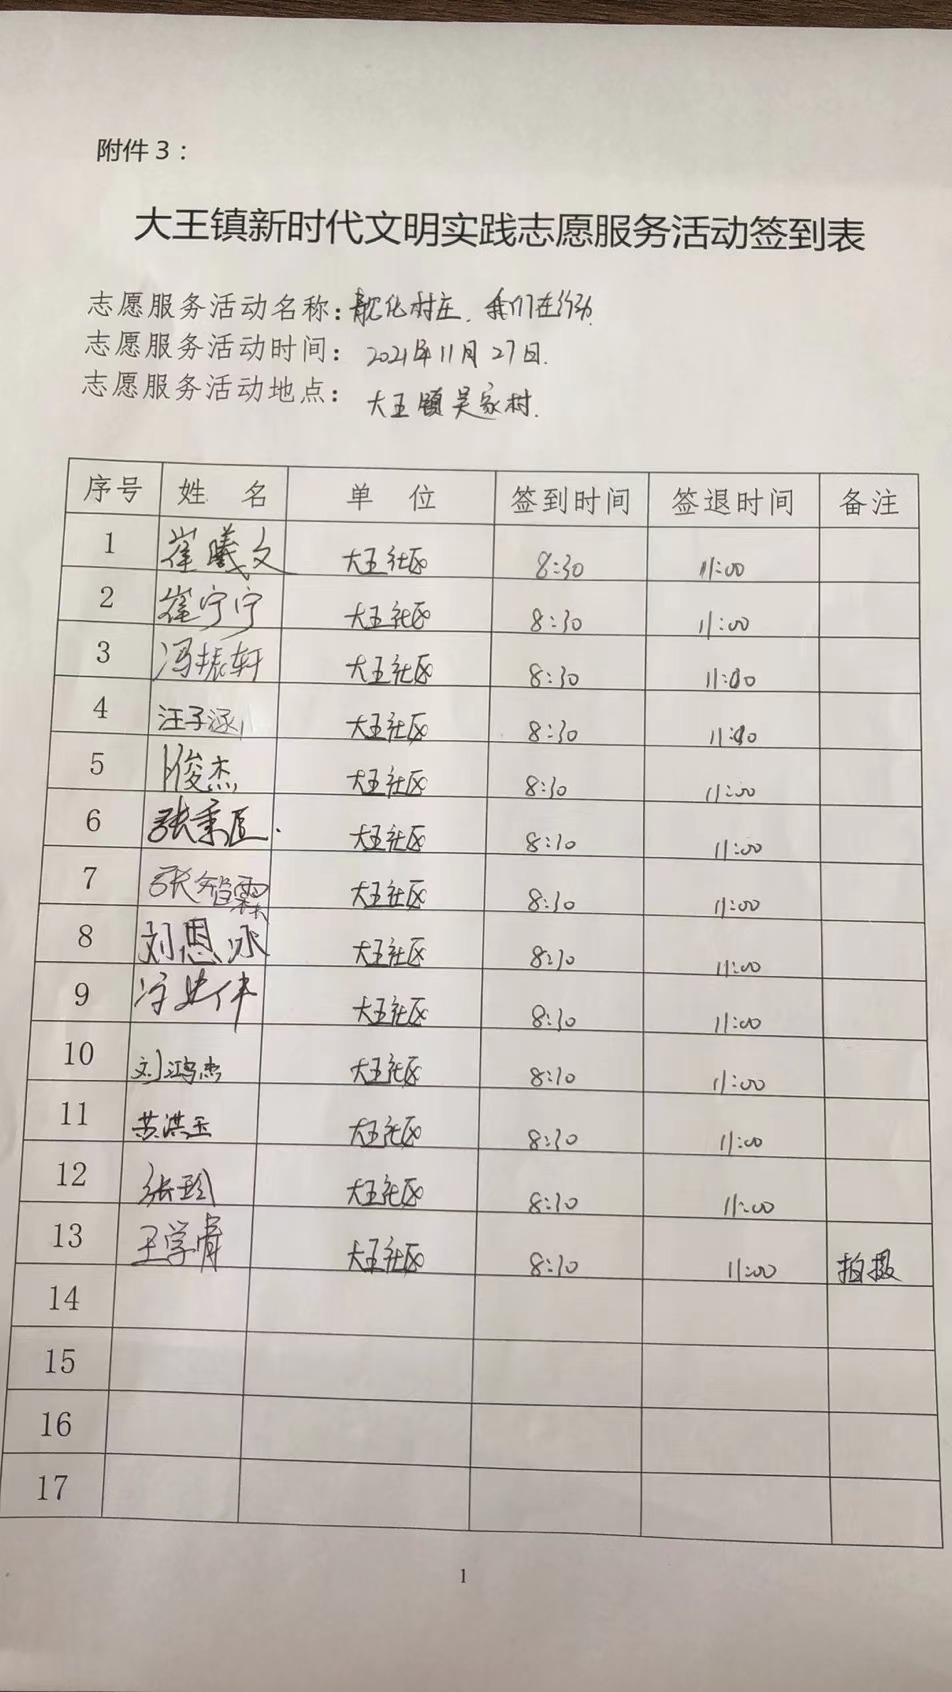 附件3：
大王镇新时代文明实践志愿服务活动签到表
志愿服务活动名称：靓化村庄，我们在行动
志愿服务活动时间：2021年11月27日.
志愿服务活动地点：大王镇吴家村.
序号 姓 名 单 位 签到时间 签退时间 备注
1 崔曦文 大王社区 8:30 11:00
2 崔宁宁 大王社区 8:30 11:00
3 冯振轩 大王社区 8:30 11:00
4 汪子涵 大王社区 8:30 11:00
5 卜俊杰 大王社区 8:30 11:00
6 张秉臣. 大王社区 8:30 11:00
7 张智霖 大王社区 8:30 11:00
8 刘恩冰 大王社区 8:30 11:00
9 大王社区 8:30 11:00
10 刘鸿杰 大王社区 8:30 11:00
11 黄洪玉 大王社区 8:30 11:00
12 张玲 大王社区 8:30 11:00
13 王学 大王社区 8:30 11:00 拍摄
14
15
16
17
1